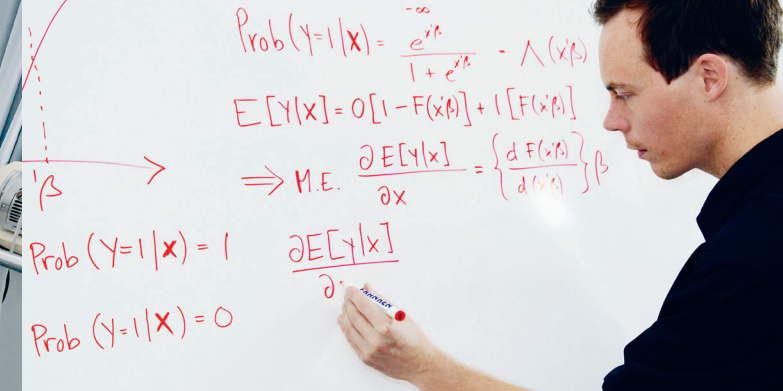 -∞
Prob(Y=1|X) = e^{x'β} / 1 + e^{x'β} - Λ(x'β)
E[Y|X] = 0[1 - F(x'β)] + 1[F(x'β)]
⇒ M.E. ∂E[Y|X] / ∂X = {d F(x'β) / d(x'β)}β
β
Prob(Y=1|X) = 1
Prob(Y=1|X) = 0
∂E[Y|X] / ∂